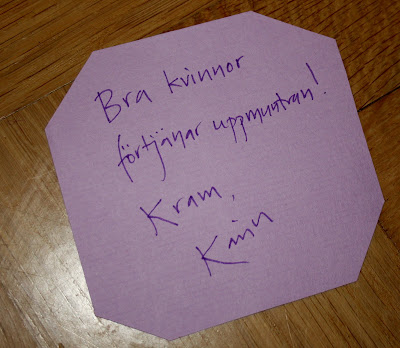 Bra kvinnor
förtjänar uppmuntran!
Kram,
Karin